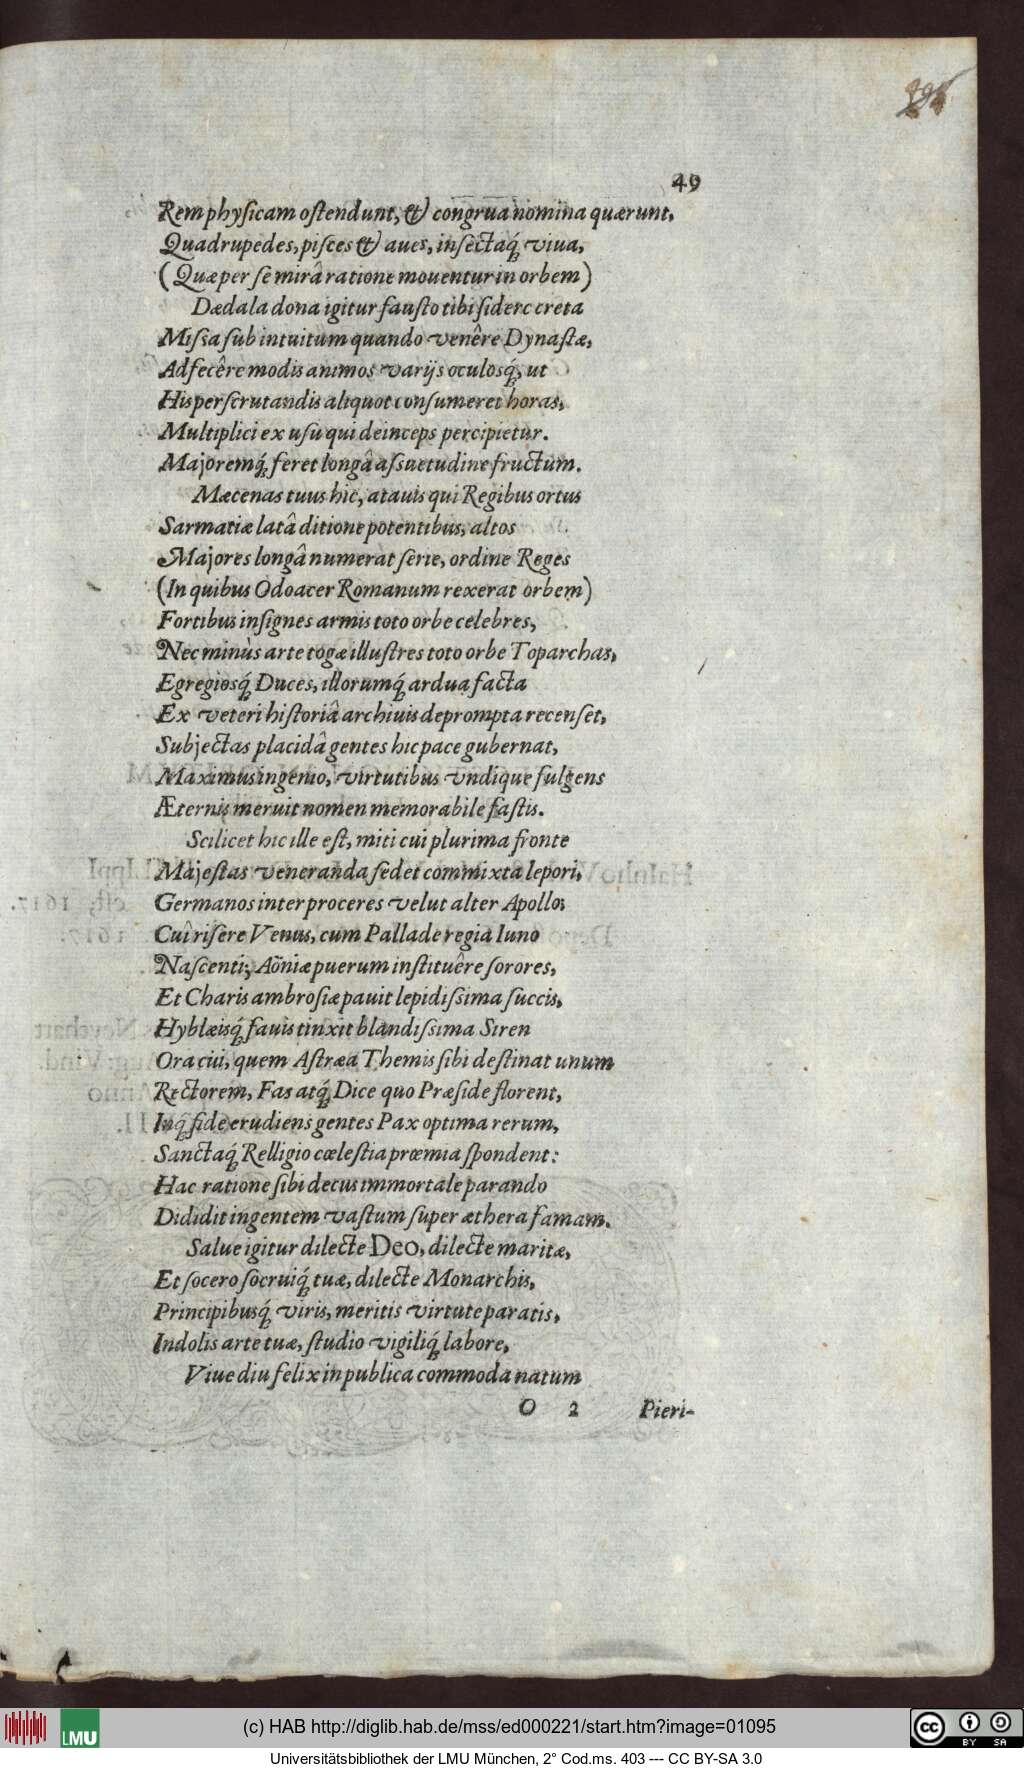 49
Rem physicam ostendunt, & congrua nomina quærunt,
Quadrupedes, pisces & aues, insectaq́; viua,
(Quæ per se mirâ ratione mouentur in orbem)
Dædala dona igitur fausto tibi sidere creta
Missa sub intuitum quando venêre Dynastæ,
Adfecêre modis animos varijs oculosq́;, ut
His perscrutandis aliquot consumeret horas,
Multiplici ex usu qui deinceps percipietur.
Majoremq́; feret longâ assuetudine fructum.
Mæcenas tuus hic, atauis qui Regibus ortus
Sarmatiæ latâ ditione potentibus, altos
Majores longâ numerat serie, ordine Reges
(In quibus Odoacer Romanum rexerat orbem)
Fortibus insignes armis toto orbe celebres,
Nec minùs arte togæ illustres toto orbe Toparchas,
Egregiosq́; Duces, illorumq́; ardua facta
Ex veteri historiâ archiuis deprompta recenset,
Subjectas placidâ gentes hic pace gubernat,
Maximus ingenio, virtutibus vndique fulgens
Æternis meruit nomen memorabile fastis.
Scilicet hic ille est, miti cui plurima fronte
Majestas veneranda sedet commixta lepori,
Germanos inter proceres velut alter Apollo;
Cuî risere Venus, cum Pallade regia Iuno
Nascenti; Aöniæ puerum instituêre sorores,
Et Charis ambrosiæ pauit lepidissima succis,
Hyblæisq́; fauis tinxit blandissima Siren
Ora cui, quem Astræa Themis sibi destinat unum
Rectorem, Fas atq́; Dice quo Præside florent,
Inq́; fide erudiens gentes Pax optima rerum,
Sanctaq́; Relligio cœlestia præmia spondent:
Hac ratione sibi decus immortale parando
Dididit ingentem vastum super æthera famam.
Salue igitur dilecte Deo, dilecte maritæ,
Et socero socruiq́; tuæ, dilecte Monarchis,
Principibusq́; viris, meritis virtute paratis,
Indolis arte tuæ, studio vigiliq́; labore,
Viue diu felix in publica commoda natum
O 2 Pieri-
LMU
(c) HAB http://diglib.hab.de/mss/ed000221/start.htm?image=01095
cc BY SA
Universitätsbibliothek der LMU München, 2° Cod.ms. 403 --- CC BY-SA 3.0